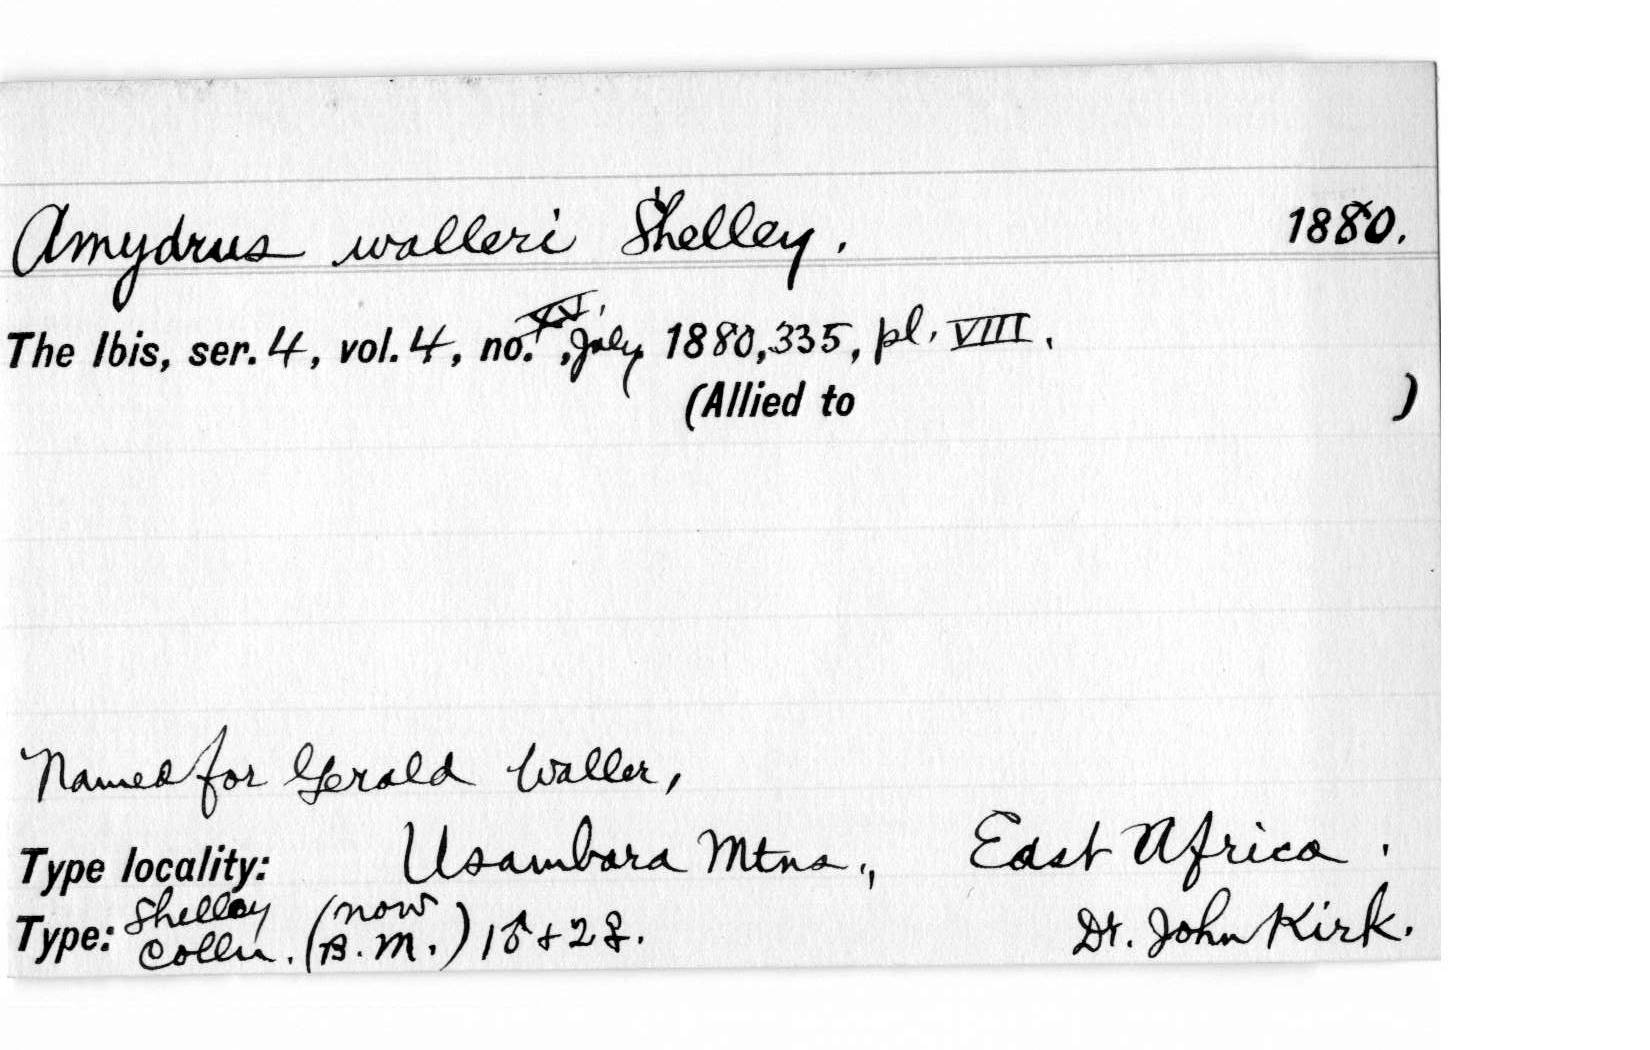 Amydrus walleri Shelley. 1880.
The Ibis, ser. 4, vol. 4, no. XV, July, 1880, 335, pl. VIII.
(Allied to )
Named for Gerald Waller,
Type locality: Usambara Mtns., East Africa.
Type: Shelley Colln. (now B.M.) 1♂+2♀. Dr. John Kirk.